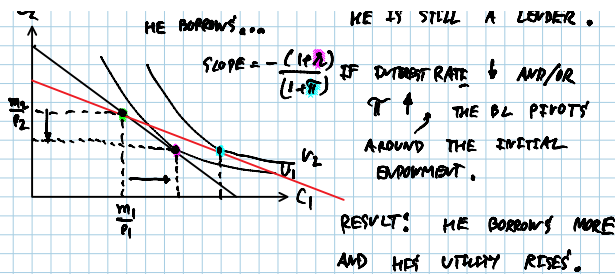 C2
HE BORROWS...
SLOPE = -(1+r)/(1+π)
m2/P2
U2
U1
C1
m1/P1
HE IS STILL A LENDER.
IF INTEREST RATE ↓ AND/OR
π ↑ THE BL PIVOTS
AROUND THE INITIAL
ENDOWMENT.
RESULT: HE BORROWS MORE
AND HIS UTILITY RISES.